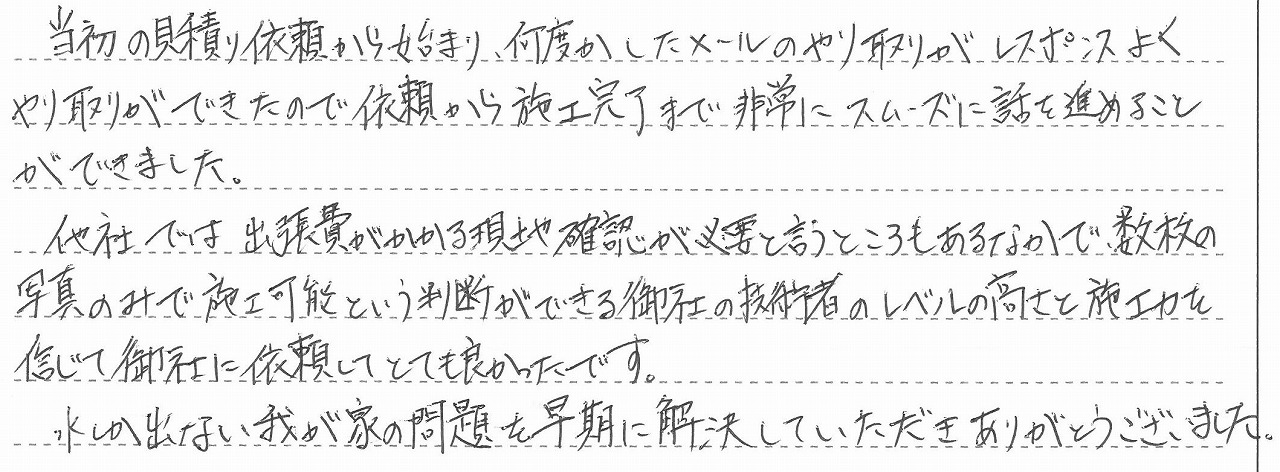 当初の見積り依頼から始まり、何度かしたメールのやり取りが レスポンスよく
やり取りができたので依頼から施工完了まで非常に スムーズに話を進めること
ができました。
他社では出張費がかかる現地確認が必要と言うところもあるなかで、数枚の
写真のみで施工可能という判断ができる御社の技術者のレベルの高さと施工力を
信じて御社に依頼してとても良かったです。
水しか出ない我が家の問題を早期に解決していただきありがとうございました。